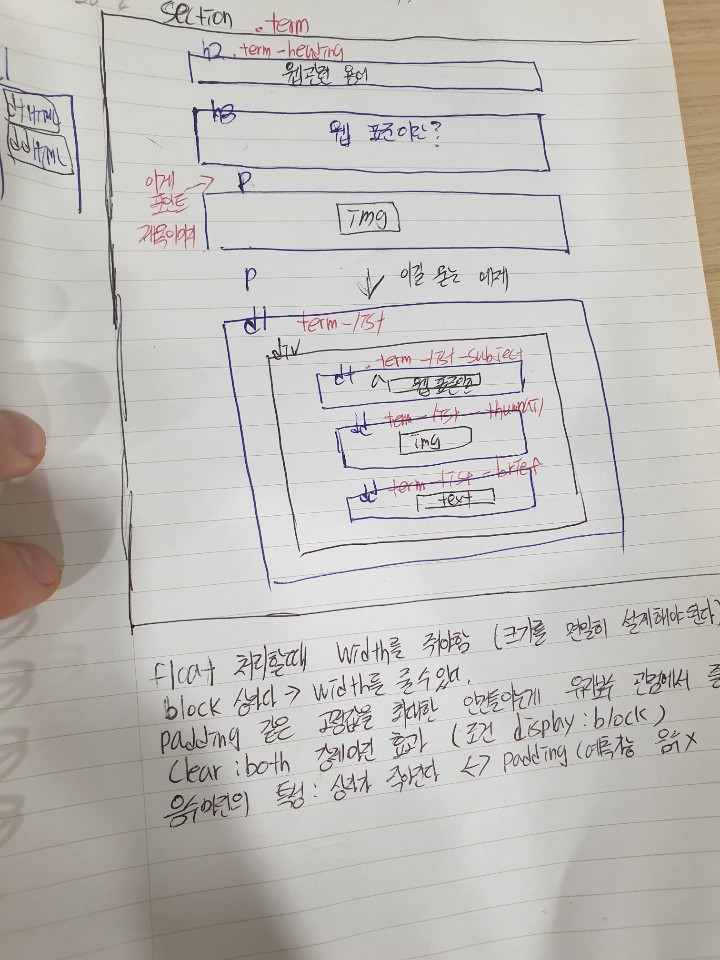 section .term
h2 .term-heading
웹관련 용어
h3
웹 표준이란?
이게
포인트
p
img
p
이걸 묶는 예제
dl term-list
div
dt .term-list-subject
a 웹 표준이란
dd term-list-thumbnail
img
dd term-list-brief
text
dt HTML
dd HTML
float 처리할때 width를 줘야함 (크기를 면밀히 설계해야된다)
block 상태다 → width를 줄수있다.
padding 같은 고정값을 최대한 안건들이는게 유지보수 관점에서
clear:both 경계이런 효과 (조건 display:block)
음수마진의 특성: 상자가 <-> padding ( 음수 x